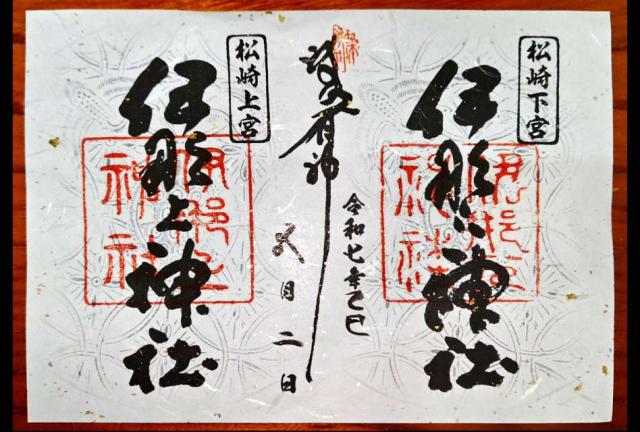 松崎下宮
伊那下神社
令和七年乙巳
八月二日
松崎上宮
伊那上神社
伊那上神社